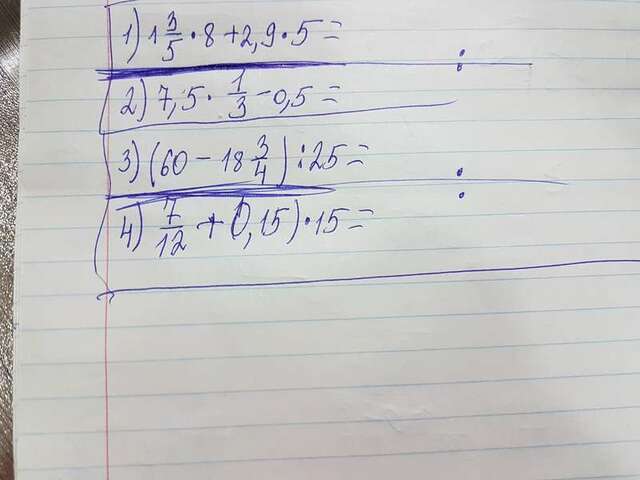 1) 1 3/5 · 8 + 2,9 · 5 =
2) 7,5 · 1/3 - 0,5 =
3) (60 - 18 3/4) : 25 =
4) 7/12 + 0,15) · 15 =